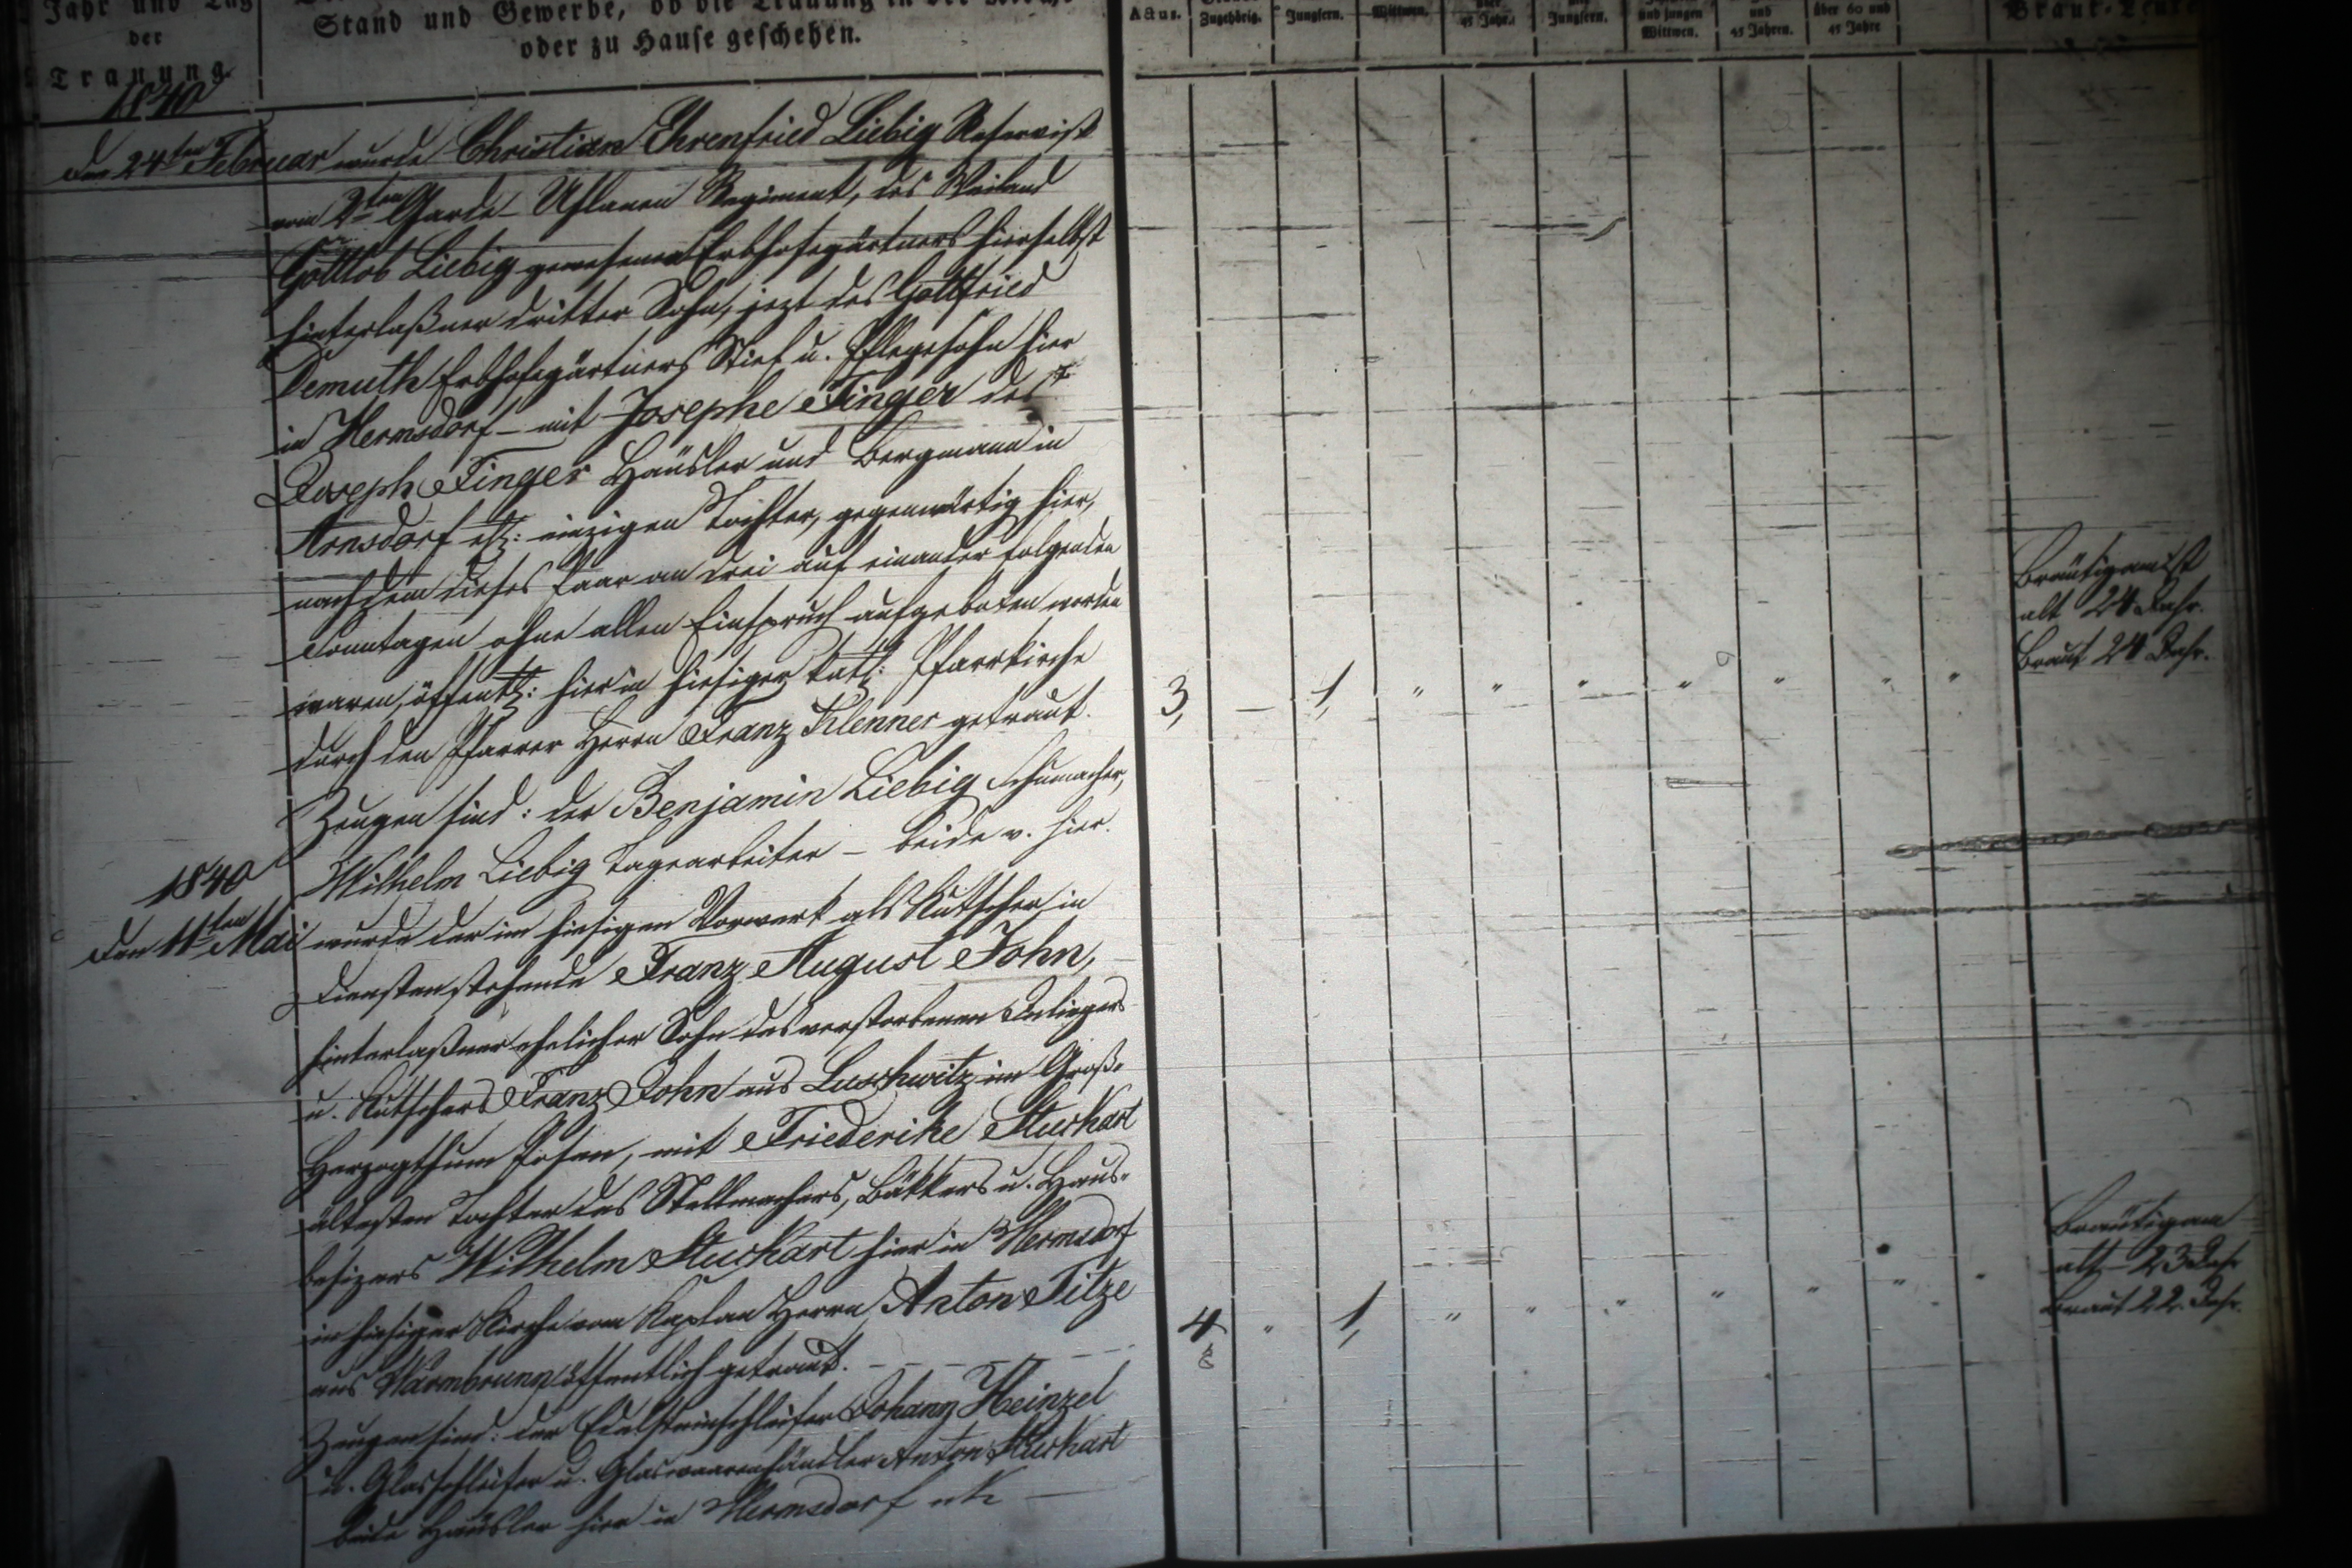 Jahr und Tag
der
Trauung.
Stand und Gewerbe, ob die Trauung in der Kirche
oder zu Hause geschehen.
Zugehörig.
Jungfern.
Wittwen.
45 Jahr.
Jungfern.
und jungen
Wittwen.
und
45 Jahren.
über 60 und
45 Jahre
Braut-Leute
1840
den 24ten Februar wurde Christian Ehrenfried Liebig Reservist
vom 2ten Garde-Uhlanen Regiment, des Weiland
Gottlob Liebig gewesenen Erbhofegärtners hierselbst
hinterlaßner dritter Sohn, jezt des Gottfried
Demuth Erbhofegärtners Stief u. Pflegesohn hier
in Hermsdorf – mit Josephe Finger des
Joseph Finger Häusler und Bergmann in
Arnsdorf etz: einzigen Tochter, gegenwärtig hier,
nachdem dieses Paar an drei auf einander folgenden
Sonntagen ohne allen Einspruch aufgeboten worden
waren, öffentl: hier in hiesiger kath: Pfarrkirche
durch den Pfarrer Herrn Franz Klenner getraut.
Zeugen sind: der Benjamin Liebig Schumacher,
Wilhelm Liebig Tagearbeiter – beide v. hier.
3, – 1, " " " " " " "
Bräutigam ist
alt 28 Jahr.
Braut 24 Jahr.
1840
den 11ten Mai wurde der im hiesigen Vorwerk als Kutscher in
Diensten stehende Franz August John,
hinterlaßner ehelicher Sohn des verstorbenen Inliegers
u. Kutschers Franz John aus Luschwitz im Groß-
Herzogthum Posen, mit Friederike Stuckart
ältesten Tochter des Stellmachers, Bäkkers u. Haus-
besizers Wilhelm Stuckart hier in Hermsdorf
in hiesiger Kirche vom Kaplan Herrn Anton Titze
aus Warmbrunn öffentlich getraut. – – – –
Zeugen sind: der Edelsteinschleifer Johann Heinzel
u. Glasschleifer u. Glaswaarenhändler Anton Stuckart
beide Häusler hier in Hermsdorf
4 " 1, " " " " " " "
Bräutigam
alt – 23 Jahr
Braut 22. Jahr.